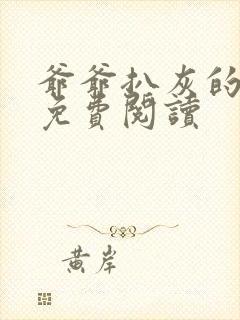 爺爺扒灰的
免費閱讀
黃岸